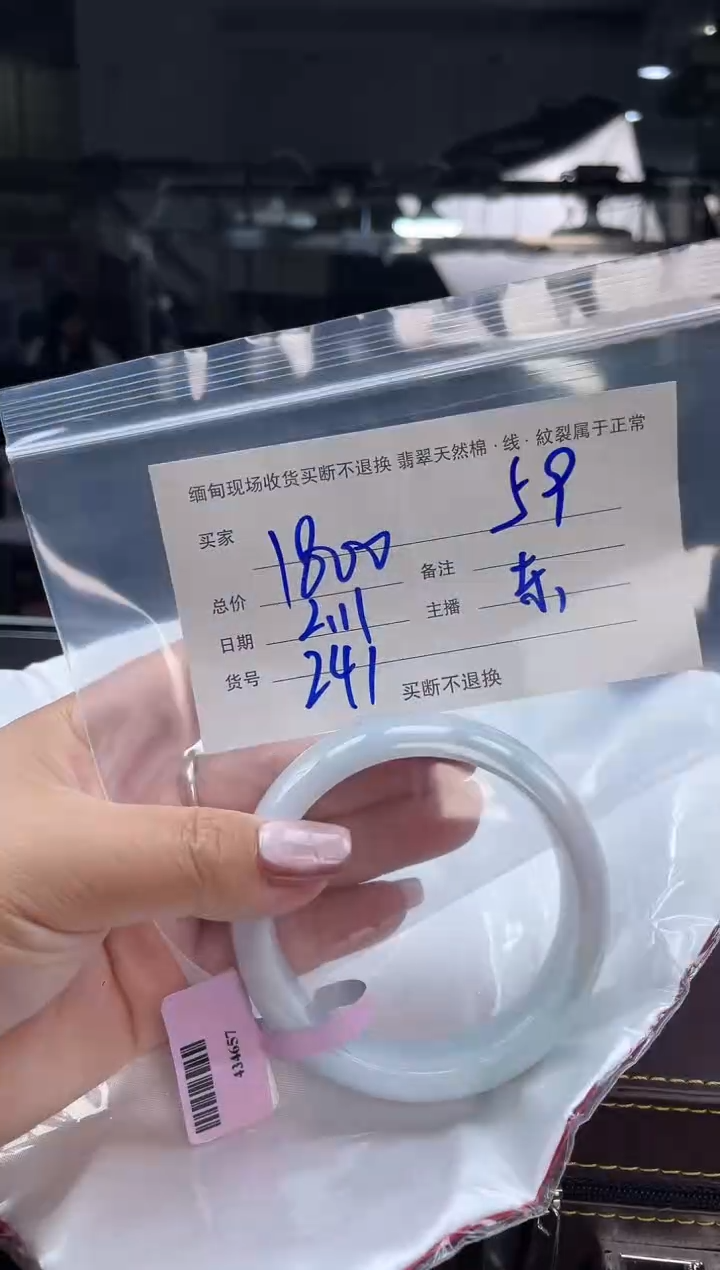 缅甸现场收货买断不退换 翡翠天然棉·线·紋裂属于正常
买家 59
总价 1800 备注
日期 2.11 主播 东
货号 241
买断不退换
434657